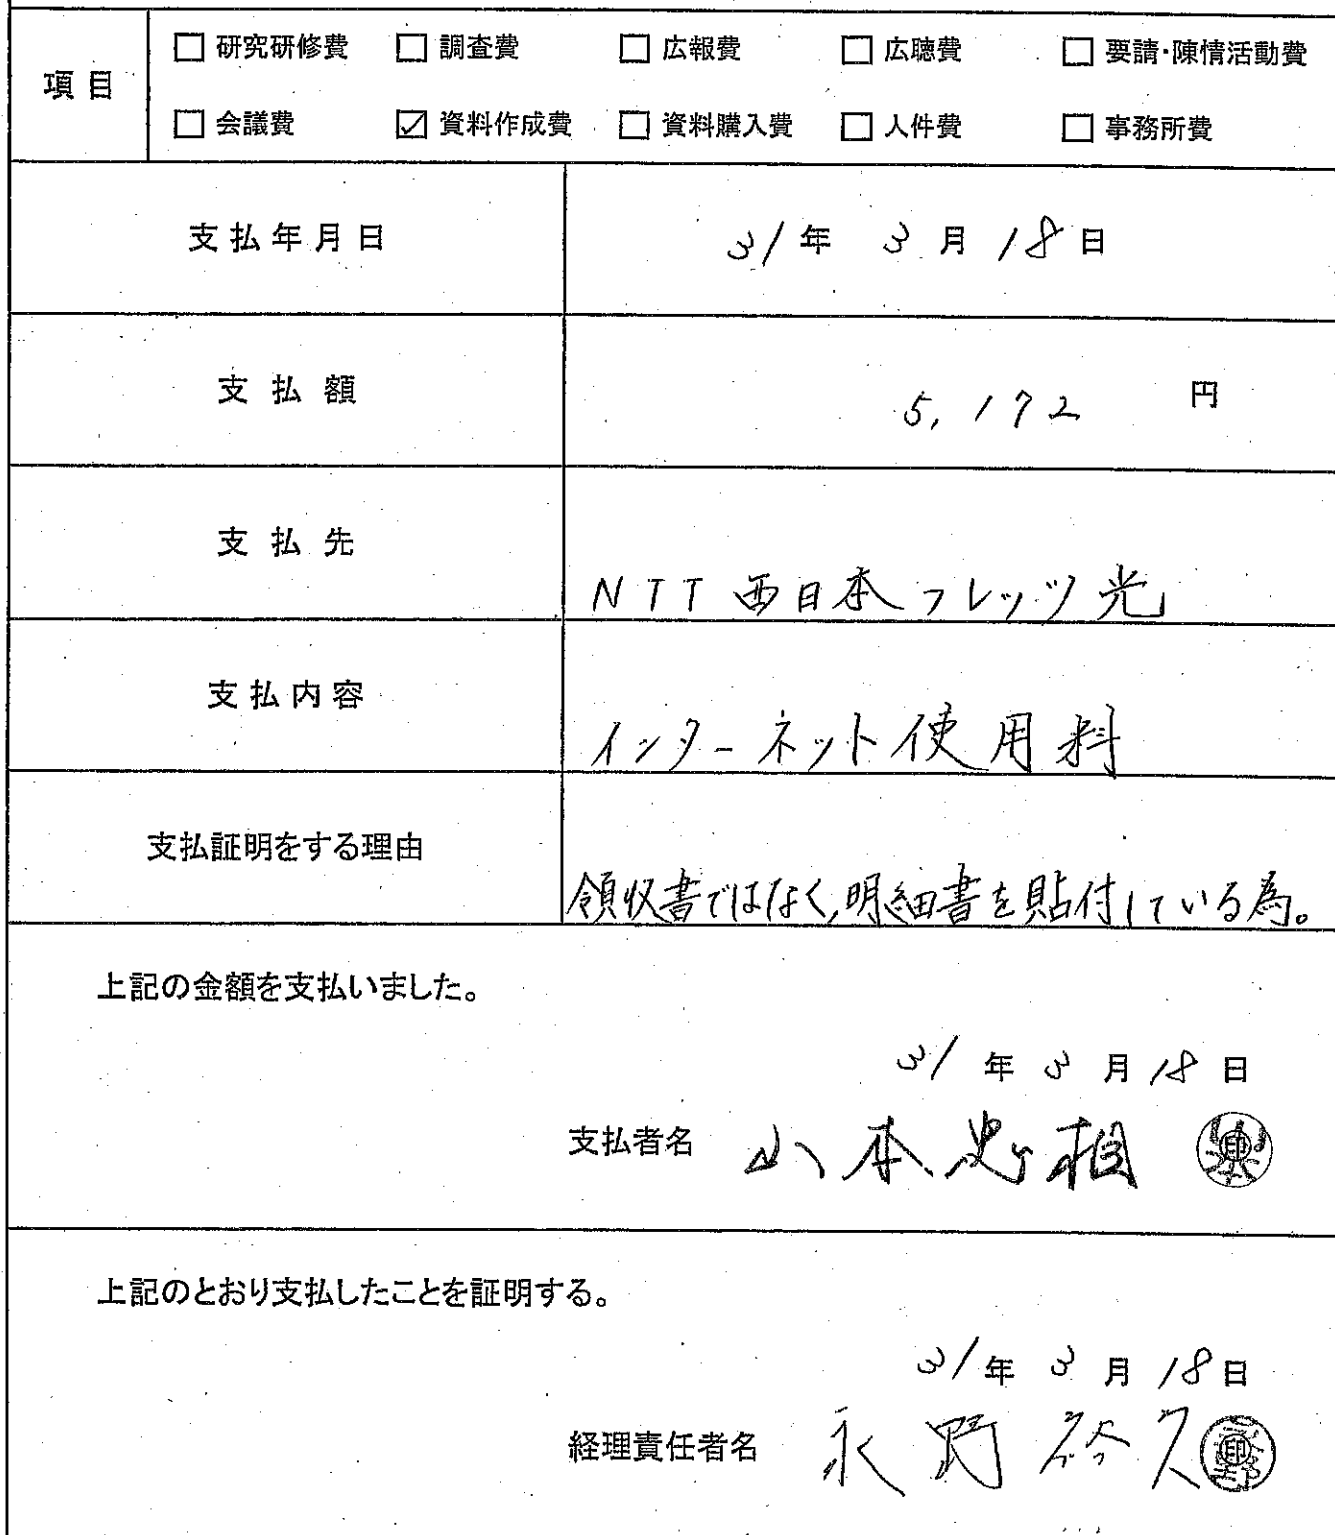 項目
□ 研究研修費 □ 調査費 □ 広報費 □ 広聴費 □ 要請・陳情活動費
□ 会議費 ☑ 資料作成費 □ 資料購入費 □ 人件費 □ 事務所費
支払年月日 31年 3月 18日
支払額 5,172 円
支払先 NTT西日本フレッツ光
支払内容 インターネット使用料
支払証明をする理由 領収書ではなく、明細書を貼付している為。
上記の金額を支払いました。
31年 3月 18日
支払者名 山本忠相 印
上記のとおり支払したことを証明する。
31年 3月 18日
経理責任者名 永野裕久 印